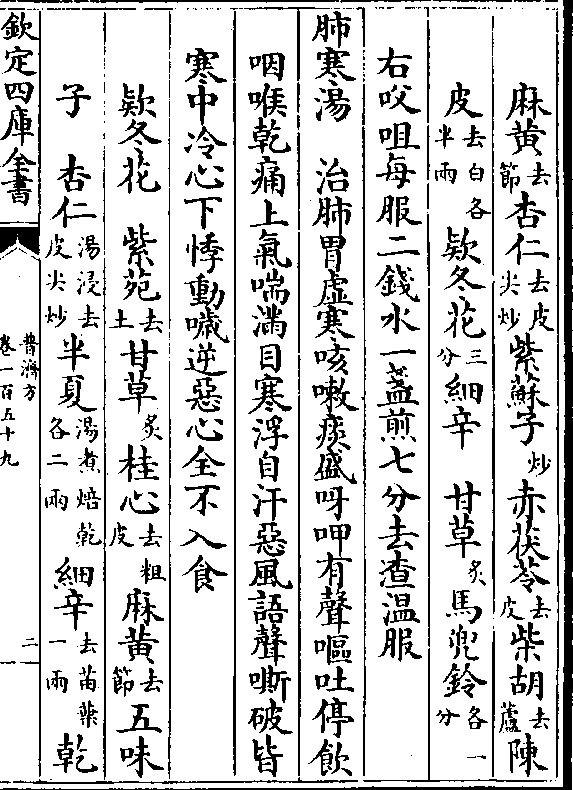 麻黄去節杏仁去皮尖炒紫蘇子炒赤茯苓去皮柴胡去蘆陳
皮去白各半兩欵冬花三分細辛 甘草炙馬兜鈴各一分
右㕮咀每服二錢水一盞煎七分去查温服
肺寒湯 治肺胃虚寒咳嗽痰盛呀呷有聲嘔吐停飲
咽喉乾痛上氣喘滿目寒浮自汗惡風語聲嘶破皆
寒中冷心下悸動噦逆惡心全不入食
欵冬花 紫菀去土甘草炙桂心去粗皮麻黄去節五味
子 杏仁湯浸去皮尖炒半夏湯煮焙乾各二兩細辛去苗葉一兩乾
欽定四庫全書
普濟方
卷一百五十九
二